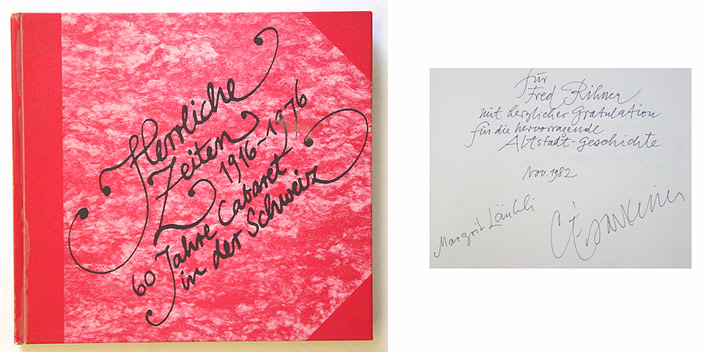 Herrliche
Zeiten
1916-1976
60 Jahre Cabaret
in der Schweiz
für
Fred Rihner
mit herzlicher Gratulation
für die hervorragende
Altstadt-Geschichte
Nov. 1982
Margrit Läubli
César Keiser